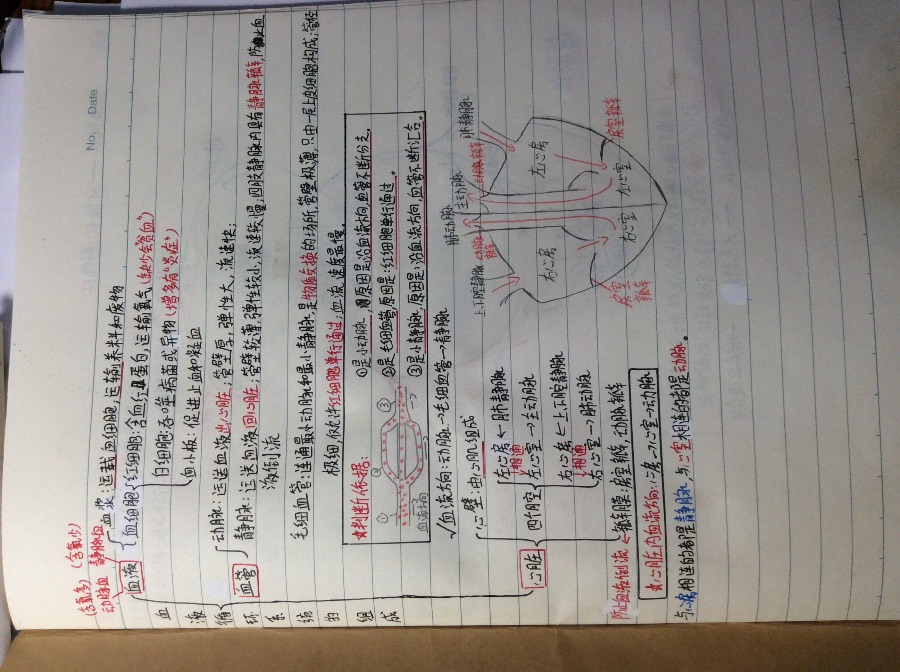 No.
Date
(含氧多) (含氧少)
动脉血 静脉血
血液循环系统的组成
血液
血浆:运载血细胞,运输养料和废物
血细胞
红细胞:含血红蛋白,运输氧气(缺少会贫血)
白细胞:吞噬病菌或异物(增多有“炎症”)
血小板:促进止血和凝血
血管
动脉:运送血液出心脏;管壁厚,弹性大,流速快;
静脉:运送血液回心脏;管壁较薄,弹性较小,流速较慢;四肢静脉内具有静脉瓣,防止血
液倒流
毛细血管:连通最小动脉和最小静脉,是物质交换的场所,管壁极薄,只由一层上皮细胞构成;管径
极细,仅允许红细胞单行通过;血流速度最慢
判断依据:
① ② ③
血流方向
①是小动脉,原因是沿血流方向,血管不断分支。
②是毛细血管原因是:红细胞单行通过。
③是小静脉,原因是:沿血流方向,血管不断汇合。
√血流方向:动脉→毛细血管→静脉
心脏
心壁:由心肌组成
四个腔室
左心房←肺静脉
相通
左心室→主动脉
右心房←上下腔静脉
相通
右心室→肺动脉
防止血液倒流←瓣膜:房室瓣,动脉瓣
心脏内血流方向:心房→心室→动脉
与心房相连的都是静脉,与心室相连的都是动脉。
上下腔静脉
肺动脉
主动脉
肺静脉
动脉瓣
动脉瓣
右心房
左心房
右心室
左心室
房室瓣
房室瓣